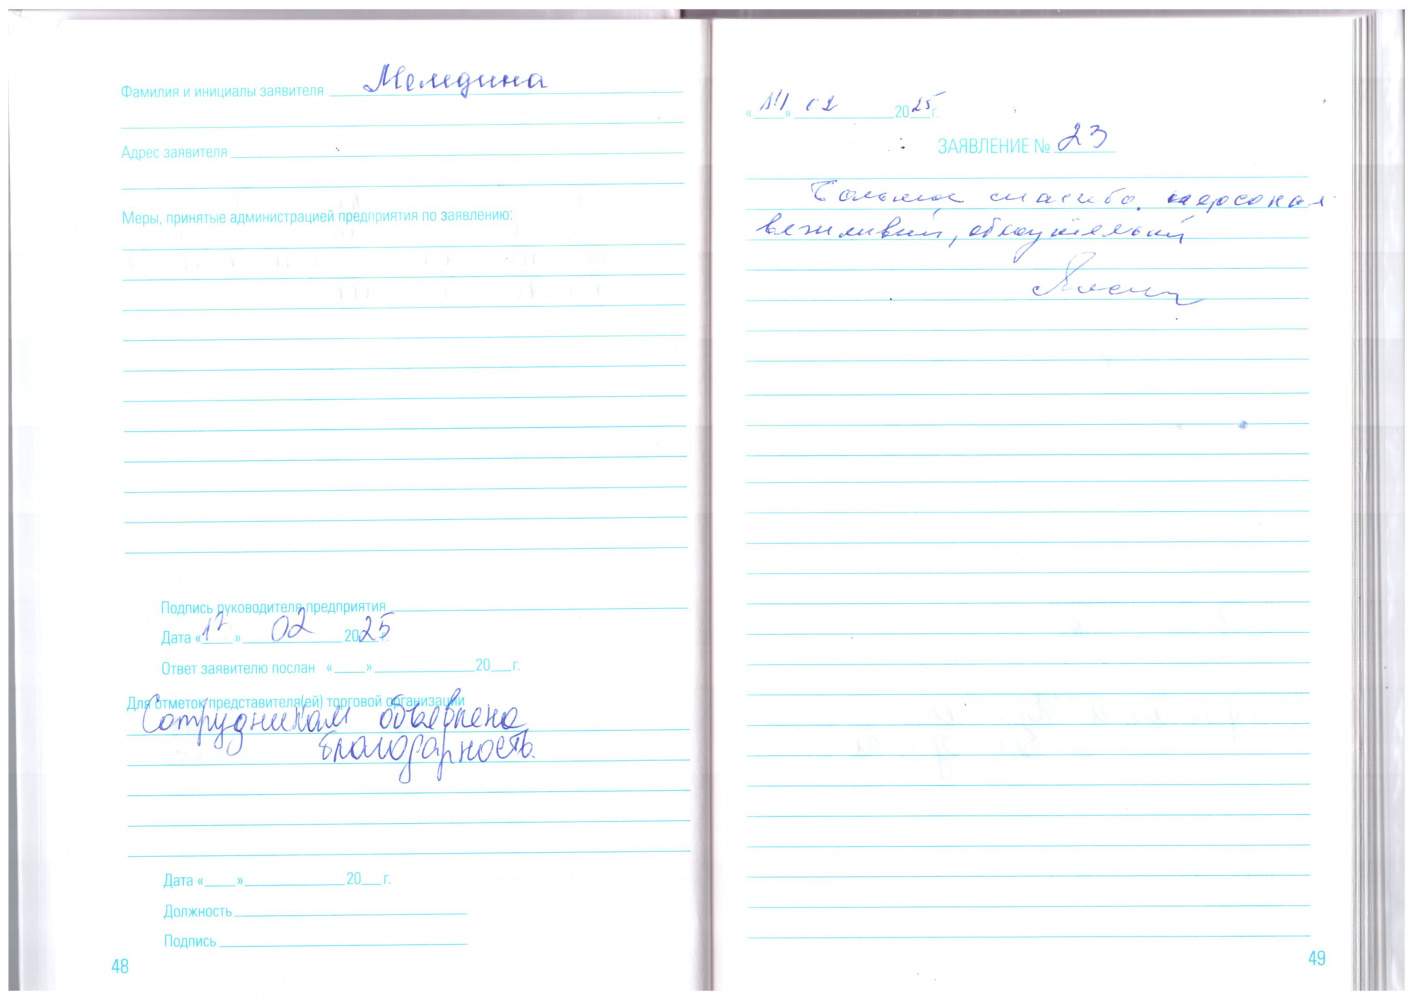 Фамилия и инициалы заявителя Меледина
Адрес заявителя
Меры, принятые администрацией предприятия по заявлению:
Подпись руководителя предприятия
Дата «17» 02 2025
Ответ заявителю послан «____» ____________ 20___г.
Для отметок представителя(ей) торговой организации
Сотрудникам объявлена
благодарность.
Дата «____» ____________ 20___г.
Должность
Подпись
48
02 2025г.
ЗАЯВЛЕНИЕ № 23
Большое спасибо. персонал
вежливый, обходительный
49